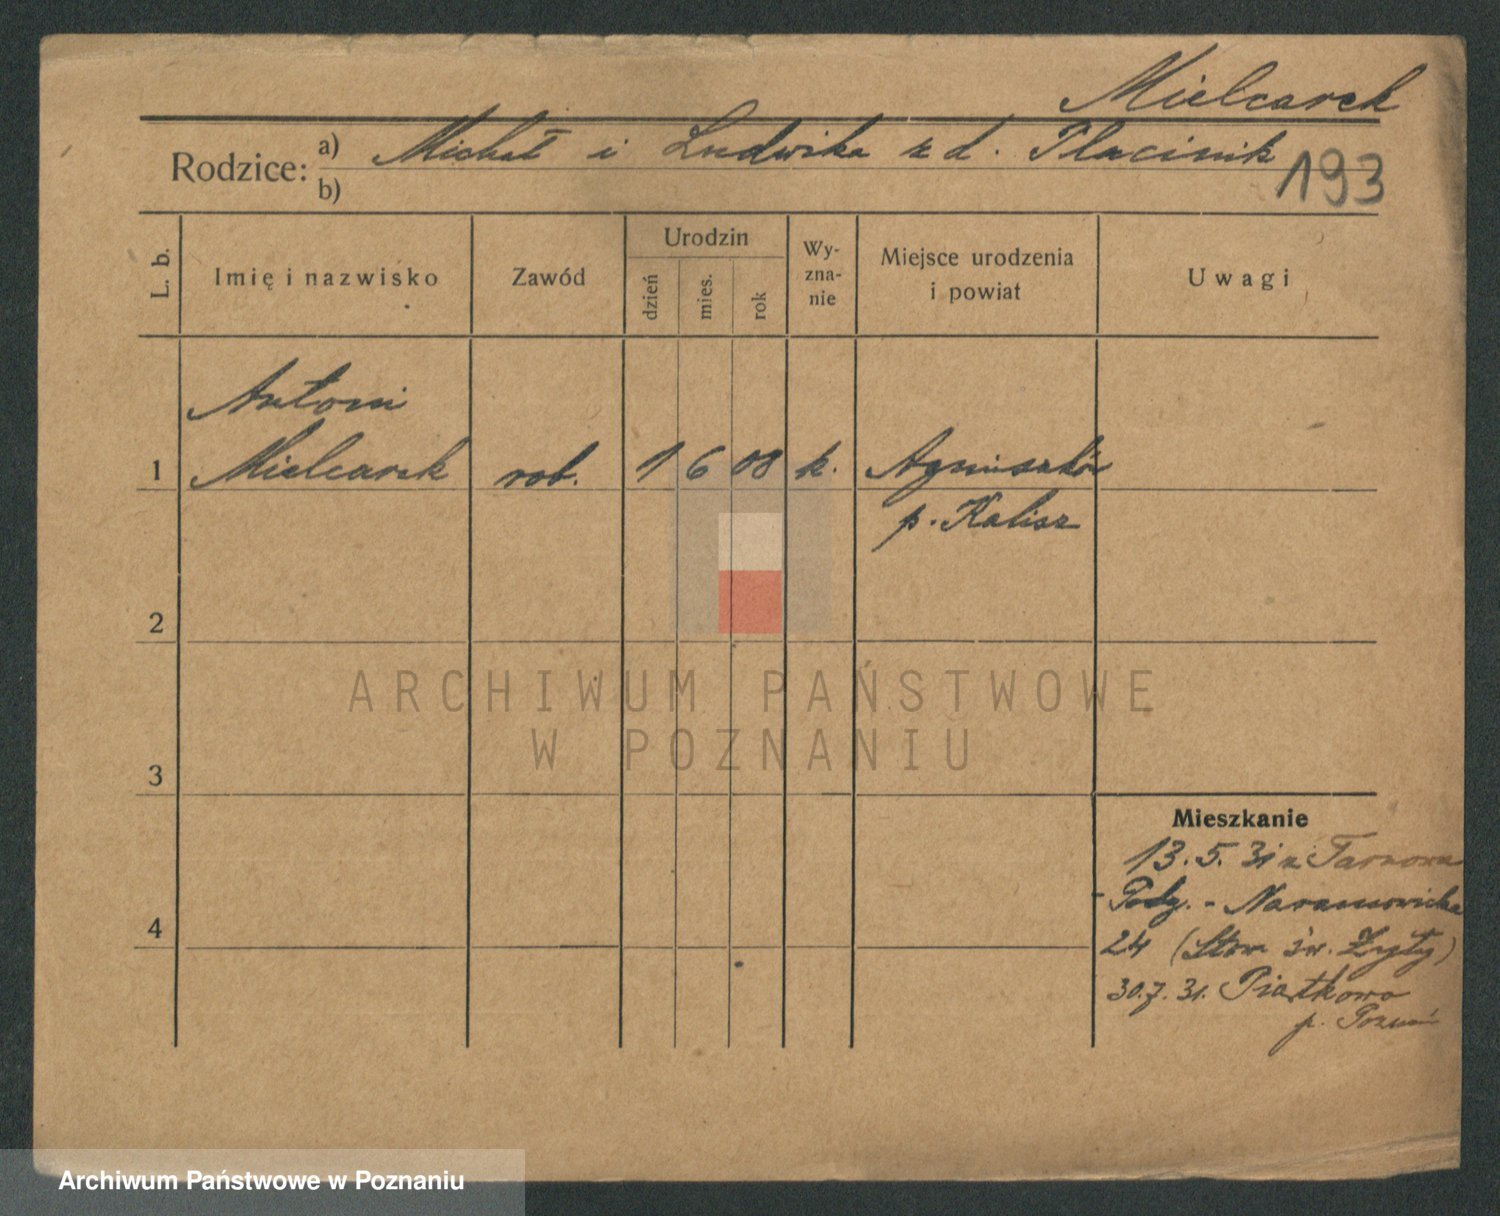 Mielcarek
Rodzice: a) Michał i Ludwika z d. Placinik
b)
193
L. b.
Imię i nazwisko
Zawód
Urodzin
dzień
mies.
rok
Wy-
zna-
nie
Miejsce urodzenia
i powiat
Uwagi
Antoni
1 Mielcarek rob. 1 6 08 k. Agnieszków
p. Kalisz
2
ARCHIWUM PAŃSTWOWE
W POZNANIU
3
Mieszkanie
13. 5. 31 z Tarnowa
Podg. - Naramowicka
4
24 (Stow. św. Zyty)
30. 7. 31. Piątkowo
p. Poznań
Archiwum Państwowe w Poznaniu